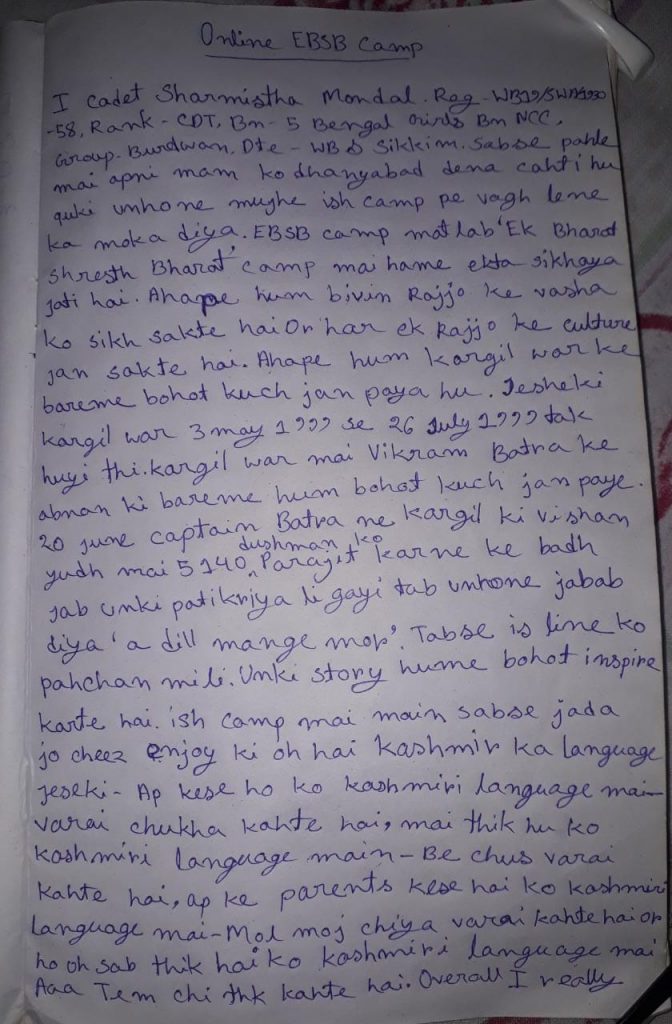 Online EBSB Camp
I cadet Sharmistha Mondal. Reg - WB19/SWA1930
-58, Rank - CDT, Bn - 5 Bengal Girls Bn NCC,
Group. Burdwan, Dte - WB & Sikkim. Sabse pahle
mai apni mam ko dhanyabad dena cahti hu
quki unhone mujhe ish camp pe vagh lene
ka moka diya. EBSB camp matlab 'Ek Bharat
Shresth Bharat' camp mai hame ekta sikhaya
jati hai. Ahape hum bivin Rajjo ke vasha
ko sikh sakte hai Or har ek Rajjo ke culture
jan sakte hai. Ahape hum kargil war ke
bareme bohot kuch jan paya hu. Jesheki
kargil war 3 may 1999 se 26 July 1999 tak
huyi thi. kargil war mai Vikram Batra ke
abnan ki bareme hum bohot kuch jan paye.
20 june captain Batra ne kargil ki vishan
yudh mai 5140 dushman ko Parajit karne ke badh
jab unki patikriya li gayi tab unhone jabab
diya 'a dill mange mor'. Tabse is line ko
pahchan mili. Unki story hume bohot inspire
karte hai. ish camp mai main sabse jada
jo cheez enjoy ki oh hai kashmir ka language
jeseki - Ap kese ho ko kashmiri language mai -
varai chukha kahte hai, mai thik hu ko
kashmiri language main - Be chus varai
kahte hai, ap ke parents kese hai ko kashmiri
language mai - Mol moj chiya varai kahte hai or
ho oh sab thik hai ko kashmiri language mai
Aaa Tem chi thk kahte hai. Overall I really